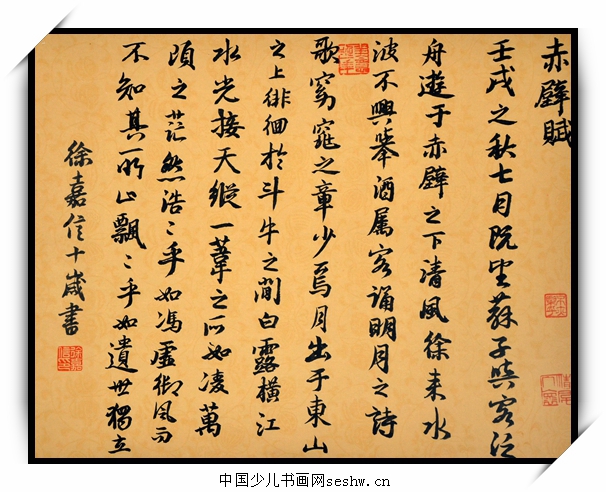 赤壁賦
壬戌之秋七月既望蘇子與客泛
舟遊于赤壁之下清風徐来水
波不興舉酒属客誦明月之詩
歌窈窕之章少焉月出于東山
之上徘徊於斗牛之間白露橫江
水光接天縱一葦之所如凌萬
頃之茫然浩〻乎如馮虛御風而
不知其所止飄〻乎如遺世獨立
徐嘉信十歲書
中国少儿书画网seshw.cn